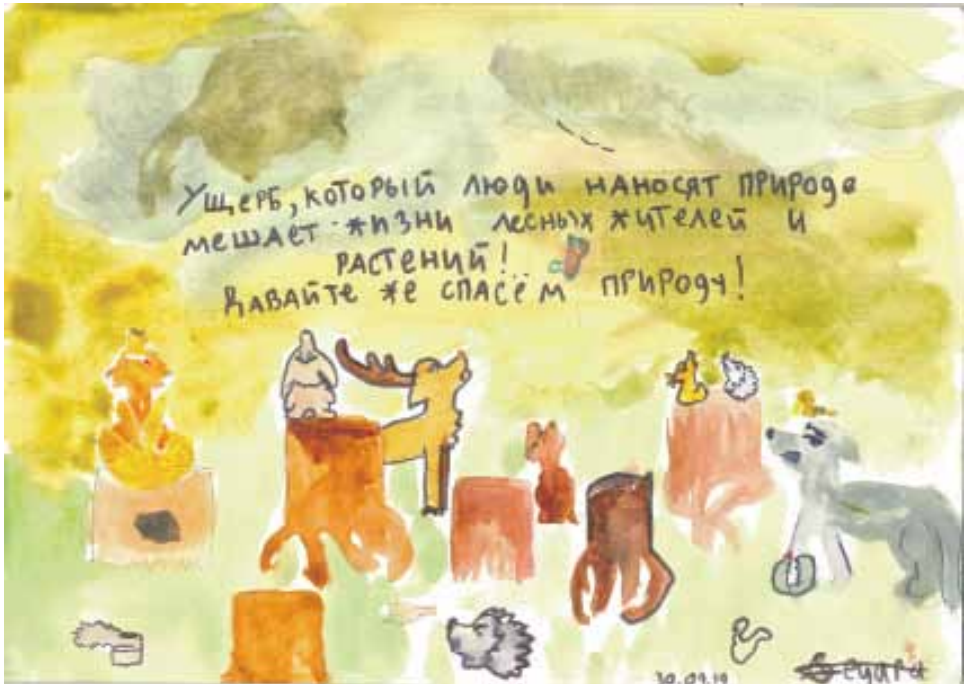 Ущерб, который люди наносят природе
мешает жизни лесных жителей и
растений!..
Давайте же спасём природу!